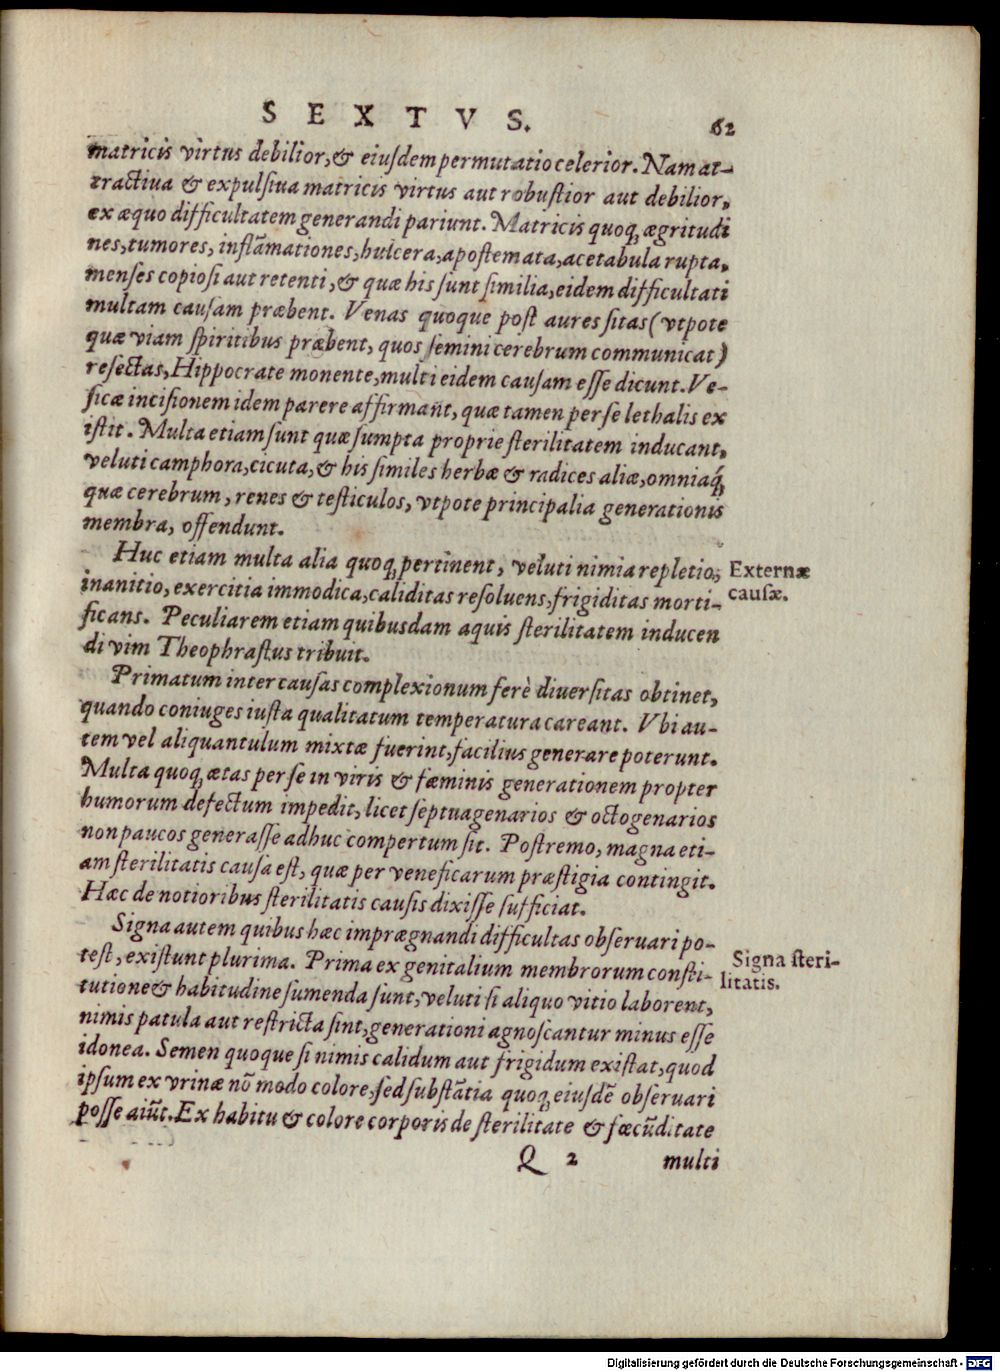 SEXTVS. 62
matricis virtus debilior, & eiusdem permutatio celerior. Nam at-
tractiua & expulsiua matricis virtus aut robustior aut debilior,
ex æquo difficultatem generandi pariunt. Matricis quoq; ægritudi
nes, tumores, inflãmationes, hulcera, apostemata, acetabula rupta,
menses copiosi aut retenti, & quæ his sunt similia, eidem difficultati
multam causam præbent. Venas quoque post aures sitas (vtpote
quæ viam spiritibus præbent, quos semini cerebrum communicat)
resectas, Hippocrate monente, multi eidem causam esse dicunt. Ve-
sicæ incisionem idem parere affirmant, quæ tamen per se lethalis ex
istit. Multa etiam sunt quæ sumpta proprie sterilitatem inducant,
veluti camphora, cicuta, & his similes herbæ & radices aliæ, omniaq́;
quæ cerebrum, renes & testiculos, vtpote principalia generationis
membra, offendunt.
Huc etiam multa alia quoq; pertinent, veluti nimia repletio,
Externæ
inanitio, exercitia immodica, caliditas resoluens, frigiditas morti-
causæ.
ficans. Peculiarem etiam quibusdam aquis sterilitatem inducen
di vim Theophrastus tribuit.
Primatum inter causas complexionum ferè diuersitas obtinet,
quando coniuges iusta qualitatum temperatura careant. Vbi au-
tem vel aliquantulum mixtæ fuerint, facilius generare poterunt.
Multa quoq; ætas per se in viris & fæminis generationem propter
humorum defectum impedit, licet septuagenarios & octogenarios
non paucos generasse adhuc compertum sit. Postremo, magna eti-
am sterilitatis causa est, quæ per veneficarum præstigia contingit.
Hæc de notioribus sterilitatis causis dixisse sufficiat.
Signa autem quibus hæc imprægnandi difficultas obseruari po-
Signa steri-
test, existunt plurima. Prima ex genitalium membrorum consti-
litatis.
tutione & habitudine sumenda sunt, veluti si aliquo vitio laborent,
nimis patula aut restricta sint, generationi agnoscantur minus esse
idonea. Semen quoque si nimis calidum aut frigidum existat, quod
ipsum ex vrinæ nõ modo colore, sed substãtia quoq; eiusdẽ obseruari
posse aiũt. Ex habitu & colore corporis de sterilitate & fœcũditate
Q 2 multi
Digitalisierung gefördert durch die Deutsche Forschungsgemeinschaft - DFG